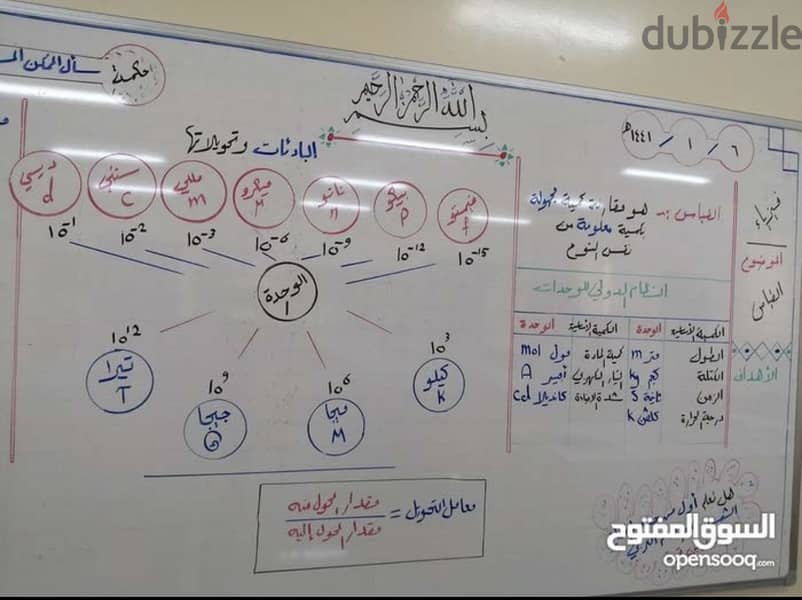 dubizzle
بسم الله الرحمن الرحيم
٦ / ١ / ١٤٤١هـ
فيزياء
الموضوع
القياس
الأهداف
القياس :- هو مقارنة كمية مجهولة
بكمية معلومة من
نفس النوع
النظام الدولي للوحدات
الكمية الأساسية الوحدة الكمية الأساسية الوحدة
الطول متر m كمية المادة مول mol
الكتلة كجم kg التيار الكهربي أمبير A
الزمن ثانية s شدة الإضاءة كانديلا cd
درجة الحرارة كلفن K
هل تعلم أول من
البادئات وتحويلاتها
فيمتو f 10⁻¹⁵
بيكو p 10⁻¹²
نانو n 10⁻⁹
ميكرو μ 10⁻⁶
مللي m 10⁻³
سنتي c 10⁻²
ديسي d 10⁻¹
الوحدة
1
10³ كيلو K
10⁶ ميجا M
10⁹ جيجا G
10¹² تيرا T
معامل التحويل = مقدار المحول منه
مقدار المحول إليه
حكمة
السوق المفتوح
opensooq.com